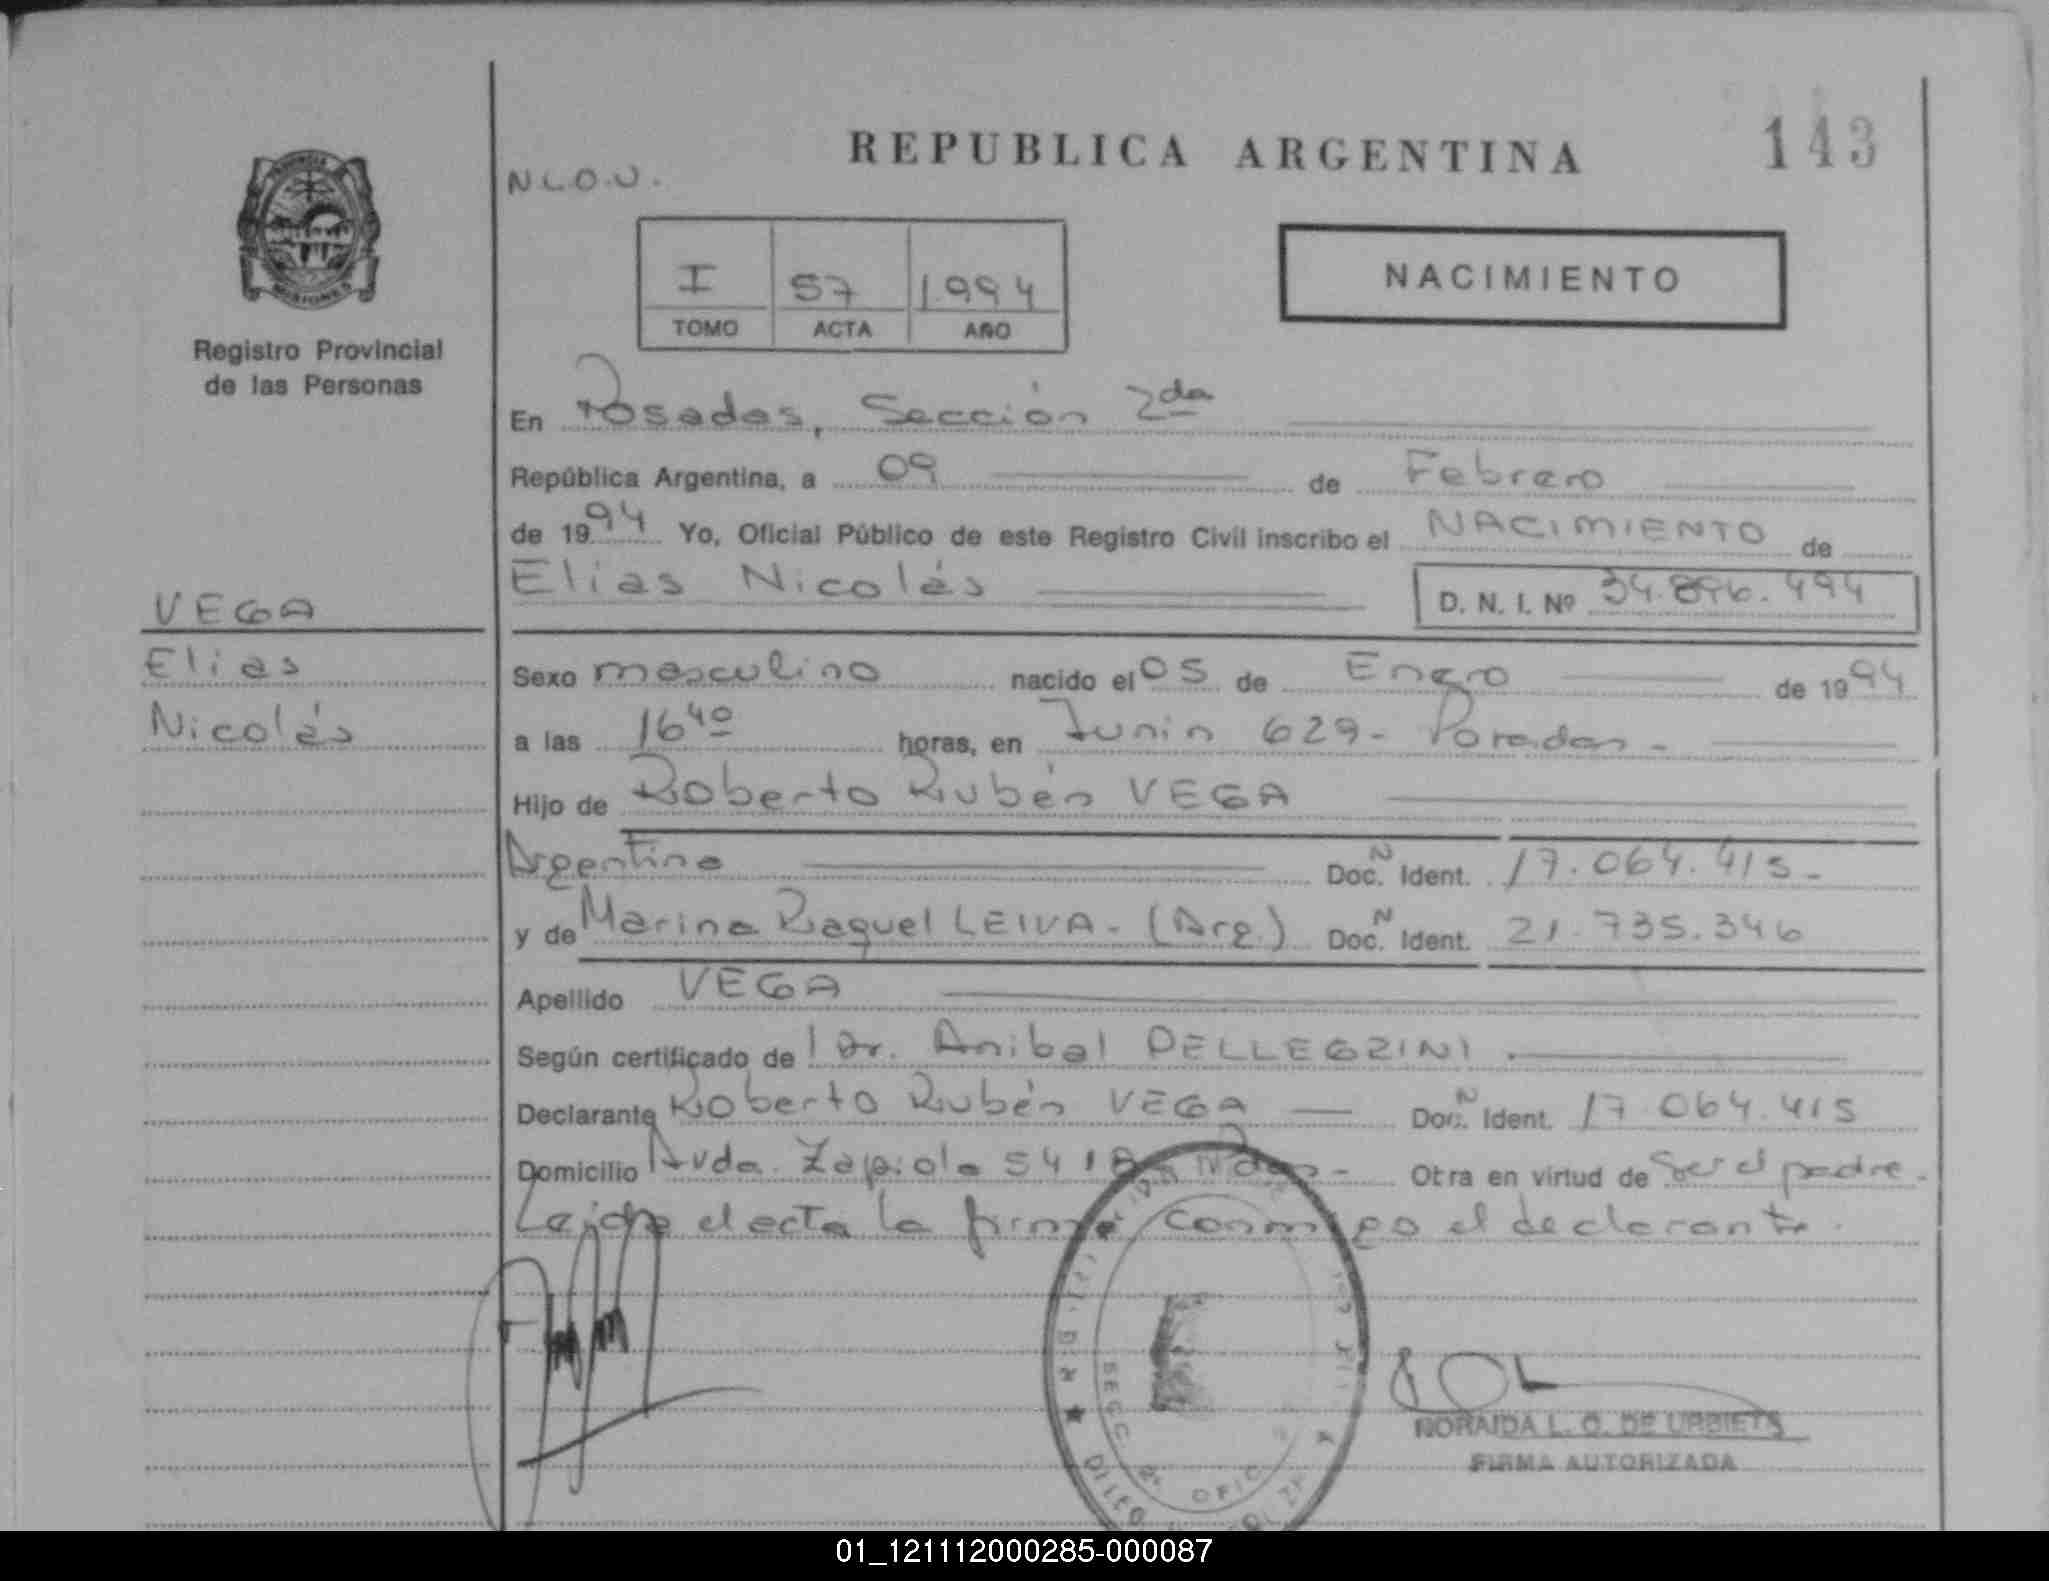 REPUBLICA ARGENTINA
143
N.L.O.U.
I 57 1994
TOMO ACTA AÑO
NACIMIENTO
MISIONES
Registro Provincial
de las Personas
En Posadas, Sección 2da
República Argentina, a 09 de Febrero
de 1994 Yo, Oficial Público de este Registro Civil inscribo el NACIMIENTO de
Elias Nicolás D. N. I. Nº 34.896.494
VEGA
Elias
Nicolás
Sexo masculino nacido el 05 de Enero de 1994
a las 16 40 horas, en Junín 629- Posadas-
Hijo de Roberto Rubén VEGA
Argentina Doc. N Ident. 17.064.415-
y de Marina Raquel LEIVA- (Arg.) Doc. N Ident. 21.735.346
Apellido VEGA
Según certificado de l Dr. Anibal PELLEGRINI.
Declarante Roberto Rubén VEGA Doc. N Ident. 17.064.415
Domicilio Avda. Zapiola 5418 Otra en virtud de Ser el padre-
Leída el acta la firma conmigo el declarante.
SECC. 2ª OFIC
NORAIDA L. O. DE URBIETA
FIRMA AUTORIZADA
01_121112000285-000087